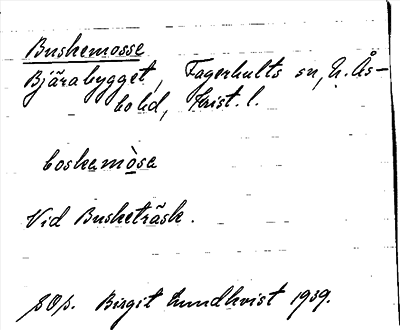 Buskemosse
Bjärabygget, Fagerhults sn, N. Ås-
bo hd, Krist. l.
boskamòsa
Vid Busketräsk.
Birgit Lundkvist 1939.